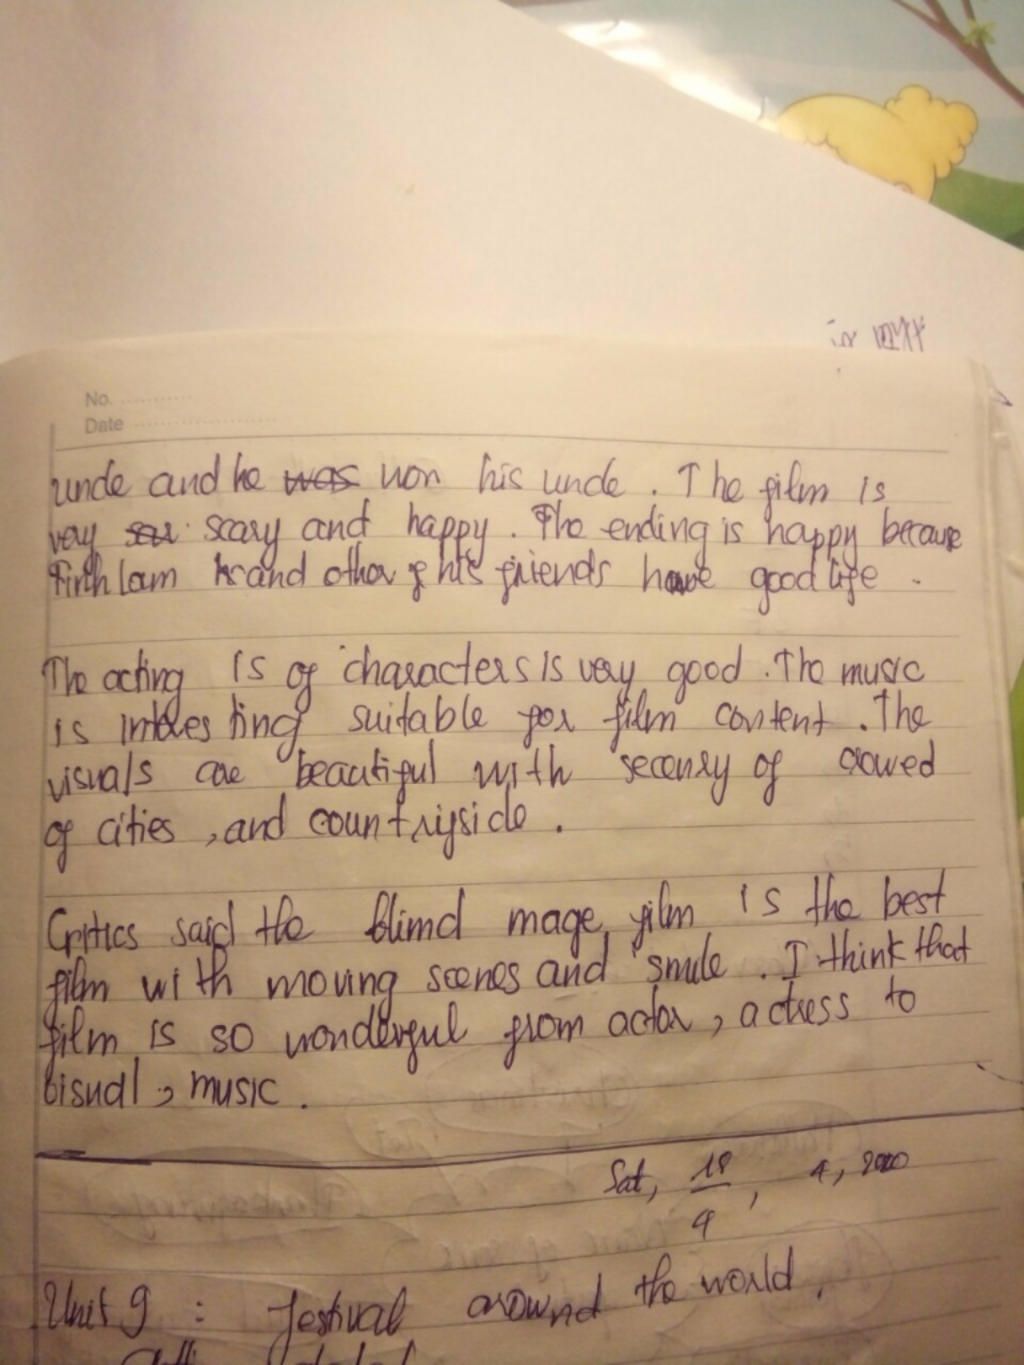 No.
Date
uncle and he was won his uncle. The film is
very scary and happy. The ending is happy because
Tinh Lam and other of his friends have good life.
The acting is of characters is very good. The music
is interesting suitable for film content. The
visuals are beautiful with secenry of crowed
of cities, and countryside.
Critics said the blimd mage film is the best
film with moving scenes and smile. I think that
film is so wonderful from actor, actress to
bisual, music.
Sat, 18/4, 4, 2020
Unit 9: festival around the world.